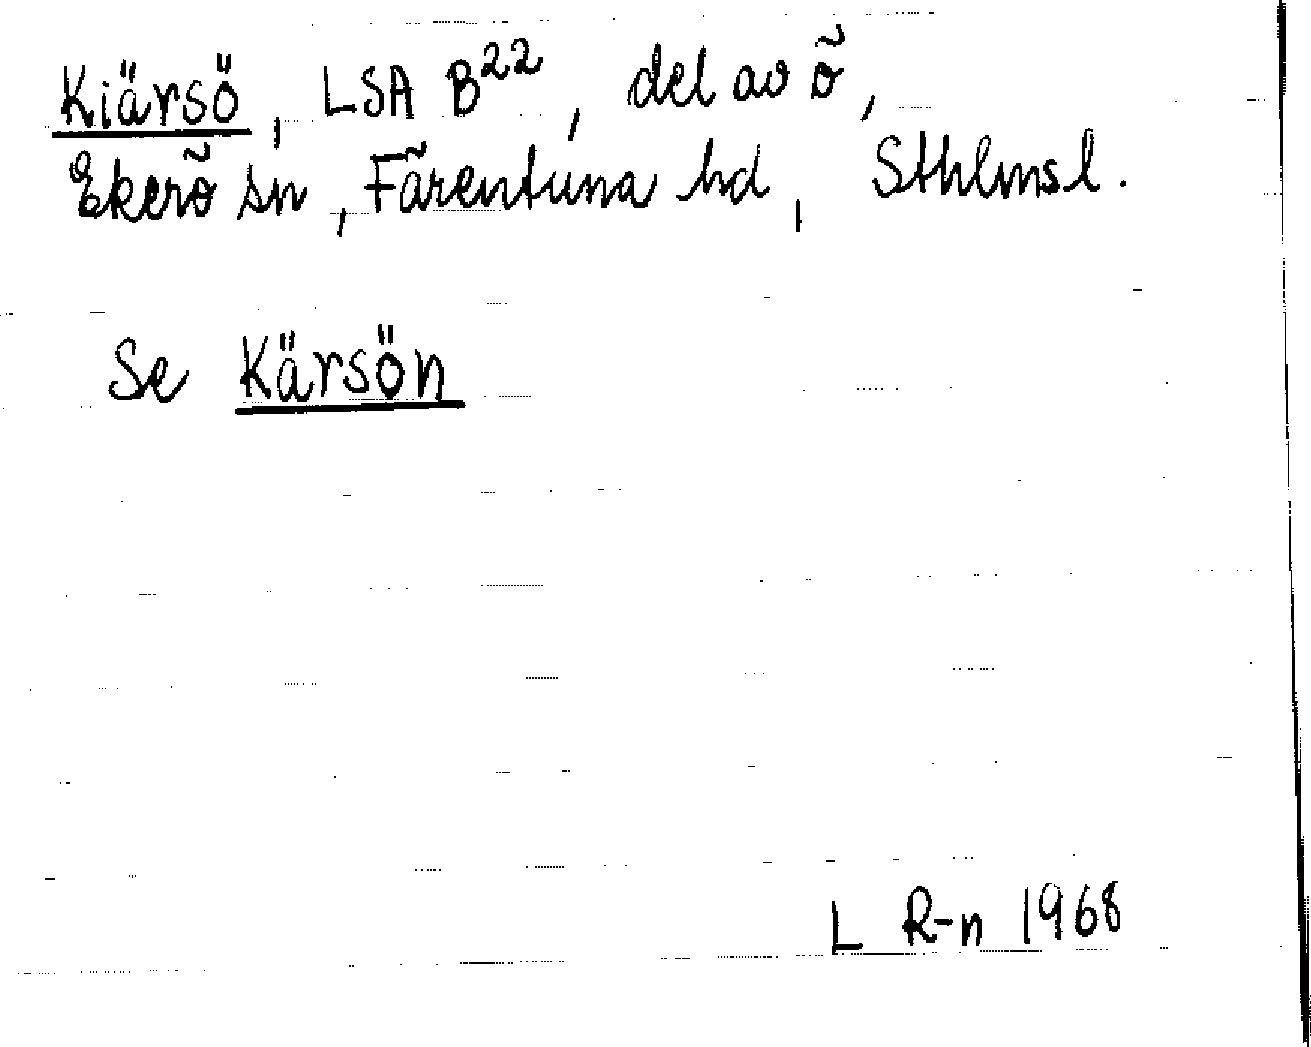 Kiärsö, LSA B²², del av ö,
Ekerö sn, Färentuna hd, Sthlmsl.
Se Kärsön
L R-n 1968